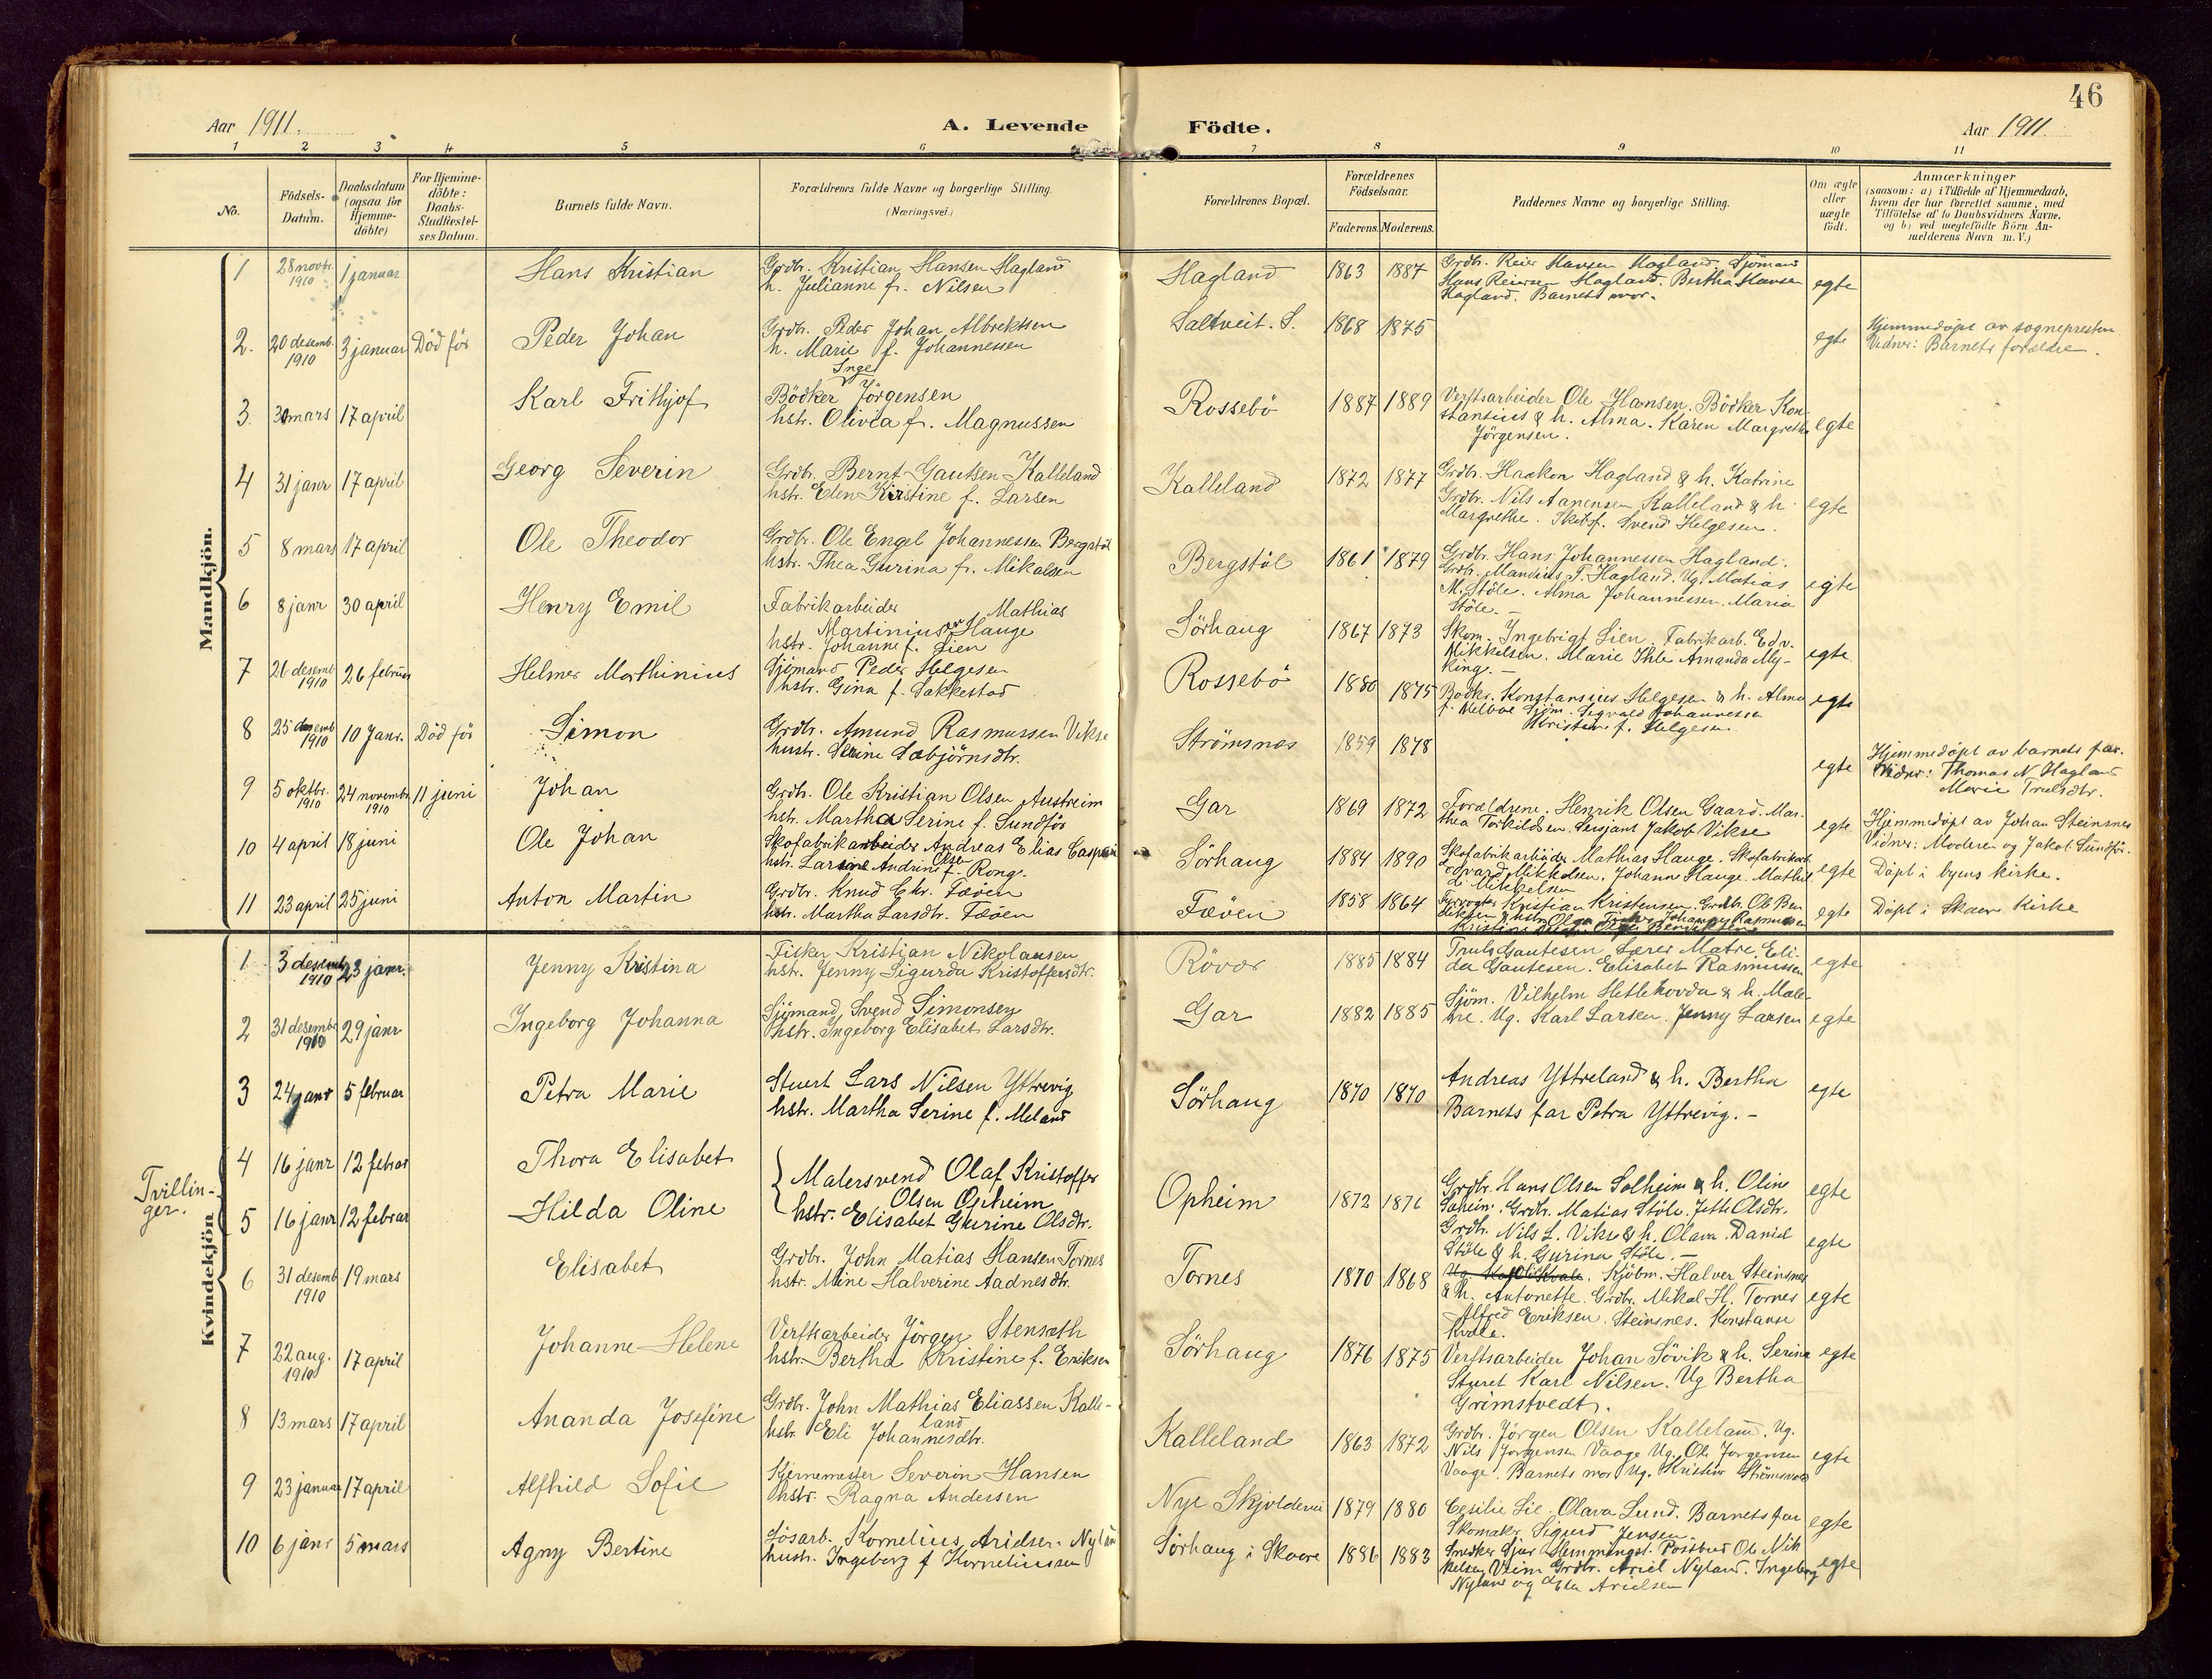 46
Aar 1911. A. Levende Födte. Aar 1911.
1 2 3 4 5 6 7 8 9 10 11
No.
Födsels-Datum.
Daabsdatum (ogsaa for Hjemme-döbte)
For Hjemme-döbte: Daabs-Stadfæstel-ses Datum.
Barnets fulde Navn.
Forældrenes fulde Navne og borgerlige Stilling. (Næringsvei.)
Forældrenes Bopæl.
Forældrenes Födselsaar.
Faderens. Moderens.
Faddernes Navne og borgerlige Stilling.
Om ægte eller uægte födt.
Anmærkninger
(saasom: a) i Tilfælde af Hjemmedaab,
hvem der har forrettet samme, med
Tilföielse af to Daabsvidners Navne.
og b) ved uægtefödte Börn An-
melderens Navn m. V.)
Mandkjön.
1 28 novbr. 1910 1 januar Hans Kristian Grdbr. Kristian Hansen Hagland
h. Julianne f. Nilsen
Hagland 1863 1887 Grdbr. Reier Hansen Hagland, Sjömand
Hans Reiersen Hagland. Bertha Hansen
Hagland. Barnets mor. egte
2. 20 desemb. 1910 3 januar Död før Peder Johan Grdbr. Peder Johan Albrektsen
h. Marie f. Johannessen
Saltveit. S. 1868 1875 egte Hjemmedøpt av sognepresten
Vidner: Barnets forældre.
3. 30 mars 17 april Karl Frithjof Inge
Bödker Jörgensen
hstr. Olivia f. Magnussen
Rossebö 1887 1889 Verftsarbeider Ole Hansen. Bödker Kon-
stansius & h. Alma. Karen Margrethe
Jörgensen. egte
4 31 janr 17 april Georg Severin Grdbr. Bernt Gautsen Kalleland
hstr. Elen Kirstine f. Larsen
Kalleland 1872 1877 Grdbr. Haakon Hagland & h. Katrine
Grdbr. Nils Aanensen Kalleland & h.
Margrethe. Svend Helgesen. egte
5 8 mars 17 april Ole Theodor Grdbr. Ole Engel Johannessen Bergstöl
hstr. Thea Gurina f. Mikalsen
Bergstöl 1861 1879 Grdbr. Hans Johannessen Hagland.
Grdbr. Mandius T. Hagland. Ug. Matias
M. Støle. Alma Johannessen. Maria
Støle. egte
6 8 janr 30 april Henry Emil Fabrikarbeider Mathias
Martinius Hauge
hstr. Johanne f. Lien
Sörhaug 1867 1873 Skom. Ingebrigt Lien. Fabrikarb. Edv.
Mikkelsen. Marie Ihle Amanda My-
king. egte
7 26 desemb 1910 26 februar Helmer Marthinius Sjömand Peder Helgesen
hstr. Gina f. Sakkestad
Rossebö 1880 1875 Bödkr. Konstansius Helgesen & h. Alma
f. Sjöm. Sigvald Johannessen
Kristine f. Helgesen egte
8 25 desemb 1910 10 Janr. Död før Simon Grdbr. Amund Rasmussen Vikse
hustr. Sæbjörnsdtr.
Strömsnes 1859 1878 egte Hjemmedøpt av barnets far.
Vidner: Thomas N Hagland
Marie Trulsdtr.
9 5 oktbr. 1910 24 novembr 1910 11 juni Johan Grdbr. Ole Kristian Olsen Austreim
hstr. Martha Serine f. Sundfør
Gar 1869 1872 Forældrene. Henrik Olsen Gaard. Mar-
thea Torkildsen. Sersjant Jakob Vikse egte Hjemmedøpt av Johan Steinsnes
Vidner: Moderen og Jakob Sundfør.
10 4 april 18 juni Ole Johan Skofabrikarbeider Andreas Elias
Olsen
hstr. Larsine Andrine f. Rong.
Sörhaug 1884 1890 Skofabrikarbeider Mathias Hauge. Skofabrikarb.
Edvard Mikkelsen. Johanne Hauge. Mathil-
de Mikkelsen egte Døpt i byens kirke.
11 23 april 25 juni Anton Martin Grdbr. Knud Chr. Fæøen
hstr. Martha Larsdtr. Fæøen
Fæöen 1858 1864 Fyrvogter Kristian Kristensen. Grdbr. Ole Ben
diksen & hstr. Olga Johannes Rasmussen
egte Døpt i Skaare Kirke
Kvindekjön
1 3 desemb 1910 23 janr. Jenny Kristina Fisker Kristian Nikolausen
hstr. Jenny Sigurda Kristoffersdtr.
Rövær 1885 1884 Truls Gautesen. Lærer Matre. Eli-
da Gautesen. Elisabet Rasmussen egte
2 31 desemb 1910 29 janr Ingeborg Johanna Sjömand Svend Simonsen
hstr. Ingeborg Elisabet Larsdtr.
Gar 1882 1885 Sjöm. Vilhelm Hetlehovda & h. Male-
ne. Ug. Karl Larsen. Jenny Larsen egte
3 24 janr 5 februar Petra Marie Stuert Lars Nilsen Yttrevig
hstr. Martha Serine f. Meland
Sörhaug 1870 1870 Andreas Yttreland & h. Bertha
Barnets far Petra Yttrevig. egte
Tvillin-
ger.
4 16 janr 12 februar Thora Elisabet
5 16 janr 12 februar Hilda Oline
Malersvend Olaf Kristoffer
Olsen Opheim
hstr. Elisabet Gurine Olsdtr.
Opheim 1872 1876 Grdbr. Hans Olsen Solheim & h. Oline
Solheim. Grdbr. Matias Støle. Jette Olsdtr. egte
Grdbr. Nils L. Vikse & h. Olava. Daniel
Støle & h. Gurina Støle. egte
6 31 desemb 1910 19 mars Elisabet Grdbr. John Matias Hansen Tornes
hstr. Mine Halverine Aadnesdtr.
Tornes 1870 1868 Kjöbm. Halver Steinsnes
& h. Antonette. Grdbr. Mikal H. Tornes
Alfred Eriksen. Steinsnes. Konstanse
Kvale. egte
7 22 aug. 1910 17 april Johanne Helene Verftsarbeider Jörgen Stensæth
hstr. Bertha Kristine f. Eriksen
Sörhaug 1876 1875 Verftsarbeider Johan Sövik & h. Serina
Sturet Karl Nilsen. Ug Bertha
Grimstvedt. egte
8 13 mars 17 april Ananda Josefine Grdbr. John Mathias Eliassen Kalle-
land
hstr. Eli Johannesdtr.
Kalleland 1863 1872 Grdbr. Jörgen Olsen Kalleland. Ug.
Nils Jørgensen Vaage Ug. Ole Jørgensen
Vaage. Barnets mor Ug. Kristine egte
9 23 januar 17 april Alfhild Sofie Severin Hansen
hstr. Ragna Andersen
Nye Skjoldevei 1879 1880 Cesilie Lie. Olava Lund. Barnets far
Skomaker Sigurd Jensen. egte
10 6 janr 5 mars Agny Bertine Løsarb. Kornelius Arielsen
hustr. Ingeborg f Korneliussen
Sörhaug i Skaare 1886 1883 Snedker Sjur Hemmingst. Postbud Ole Mik
kelsen Grdbr. Ariel Nyland. Ingeborg
Nyland og Arielsen egte